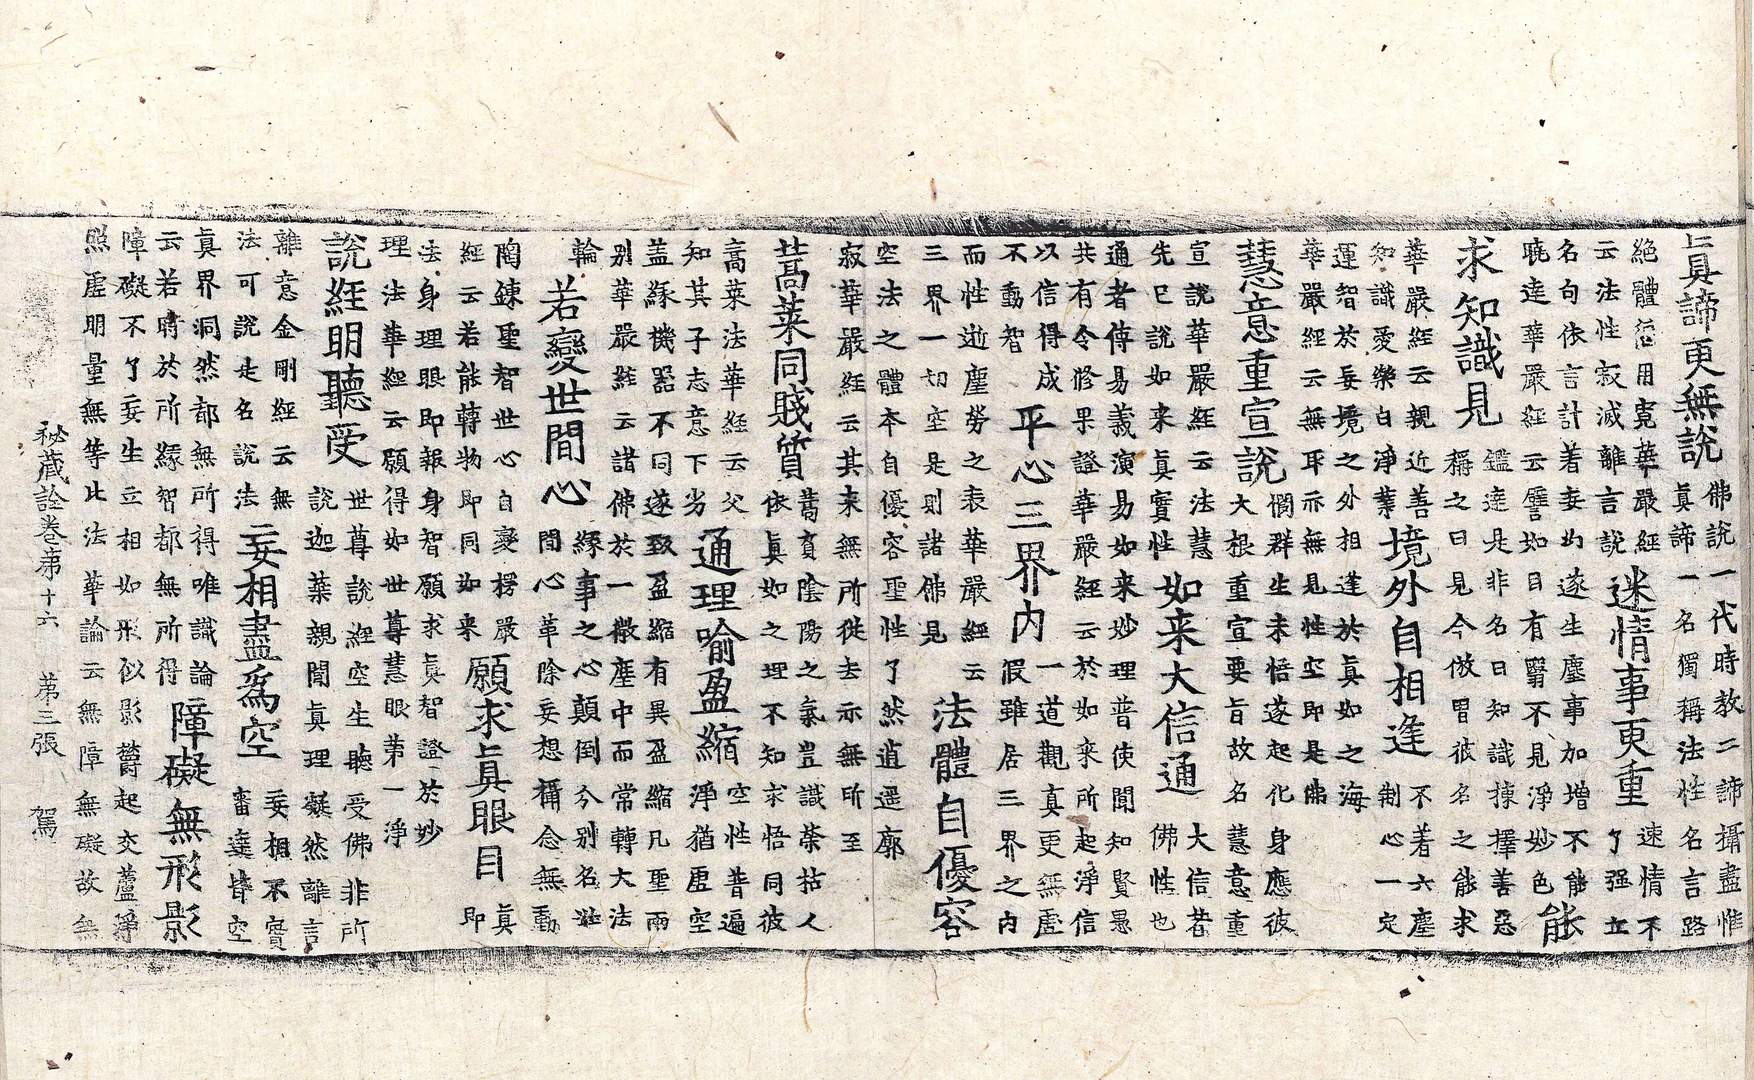 真諦更無說
佛說一代時教二諦攝盡惟
真諦一名獨稱法性名言路
絕體絕用寬華嚴經
云法性寂滅離言說
迷情事更重
速情不
了强立
名句依言計着妄均遂生塵事加增不能
曉達華嚴經云譬如目有瞖不見淨妙色
能
求知識見
鑑達是非名曰知識揀擇善惡
稱之曰見今倣冒彼名之能求
華嚴經云親近善
知識愛樂白淨業
境外自相逢
不着六塵
制心一定
運智於妄境之外相逢於真如之海
華嚴經云無耳亦無見性空即是佛
慧意重宣說
憫群生未悟遂起化身應彼
大根重宣要旨故名慧意重
宣說華嚴經云法慧
先已說如来真實性
如来大信通
大信者
佛性也
通者傳易義演易如来妙理普使聞知賢愚
共有令修果證華嚴經云於如來所起淨信
以信得成
不動智
平心三界内
一道觀真更無虛
假雖居三界之内
而性逝塵勞之表華嚴經云
三界一切空是則諸佛見
法體自優容
空法之體本自優容聖性了然逍遥廓
寂華嚴經云其来無所從去亦無所至
蒿莱同賤質
蒿賁陰陽之氣豈識荣枯人
依真如之理不知求悟同彼
蒿莱法華經云父
知其子志意下劣
通理喻盈縮
空性普遍
淨猶虛空
盖緣機器不同遂致盈縮有異盈縮凡聖兩
别華嚴經云諸佛於一微塵中而常轉大法
輪
若變世間心
緣事之心顛倒分别名世
間心革除妄想攝念無動
陶鍊聖智世心自變楞嚴
經云若能轉物即同如来
願求真眼目
真
即
法身理眼即報身智願求真智證於妙
理法華經云願得如世尊慧眼第一淨
說經明聽受
世尊說經空生聽受佛非所
說迦葉親聞真理凝然離言
離意金剛經云無
法可說是名說法
妄相盡爲空
妄相不實
違皆空
真界洞然都無所得唯識論
云若時於所緣智都無所得
障礙無形影
障礙不了妄生立相如形似影欝起交蘆淨
照虛明量無等比法華論云無障無礙故無
秘蔵詮卷第十六 第三張 駕